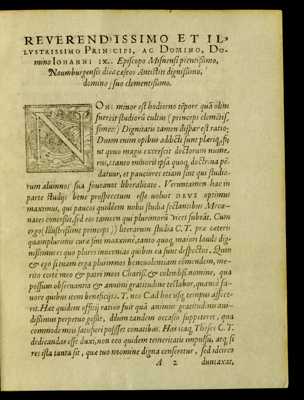 REVERENDISSIMO ET IL-
LVSTRISSIMO PRINCIPI, AC DOMINO, DO-
mino IOHANNI IX. Episcopo Misnensi pientissimo,
Naumburgensis diœceseos Antistiti dignissimo,
domino suo clementissimo.
NON minor est hodierno tēpore quā olim
fuerit studiorū cultus (princeps clementis-
sime:) Dignitatis tamen dispar est ratio:
Dum enim opibus addicti sunt pleriq;, fit
ut quo magis excrescit doctorum nume-
rus, tanto minoris ipsa quoq; doctrina pē-
datur, et pauciores etiam sint qui studio-
rum alumnos sua foueant liberalitate. Veruntamen hac in
parte studijs bene prospectum esse uoluit DEVS optimus
maximus, qui paucos quosdem nobis studia sectantibus Mecœ-
nates conseruat, sed eos tamen qui plurimorū uices subeāt. Cum
ergo (Illustrissime princeps) literarum studia C. T. præ cæteris
quamplurimis cura sint maximè, tanto quoq; maiori laude dig-
nissimus es quo plures inuenias quibus ea sunt despectui. Quin
& ego si unam erga plurimos beneuolentiam clementem, me-
rito certè meo & patri meo Charis. & colendis. nomine, qua
possum obseruantia & animi gratitudine testabor, quantū fa-
uore quibusitem beneficijs T. nos Cels. hoc usq; tempus affece-
rit. Hæc quidem officij ratio fuit quā animus gratitudinis auī-
dissimus perpetuò posset, dum tandem occasio suppeteret, qua
commodè meis satisfieri posset conatibus. Has itaq; Theses C. T.
dedicandas esse duxi, non eo quidem temeritatis impulsu, atq; si
res ista tanta sit, que tuo nomine digna censeretur, sed idcirco
A 2 duntaxat,